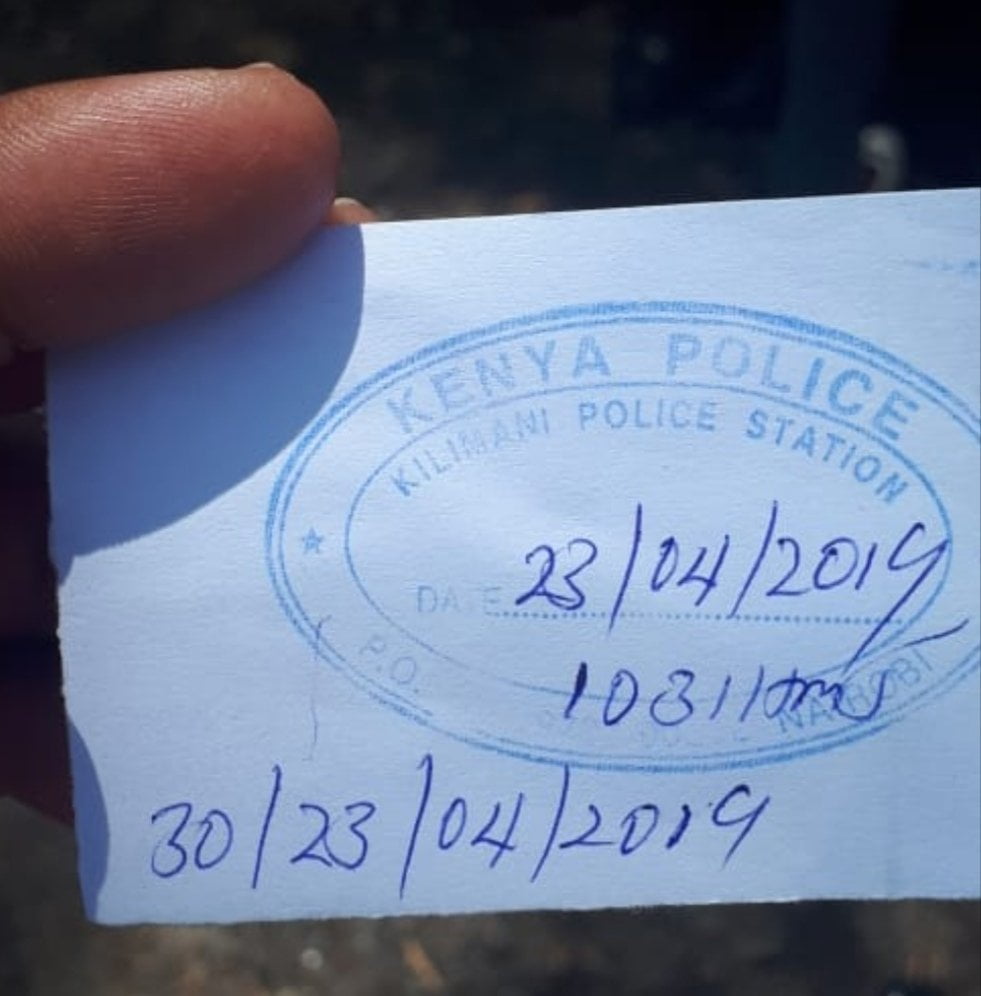 KENYA POLICE
KILIMANI POLICE STATION
DATE 23/04/2019
P.O. NAIROBI
30/23/04/2019